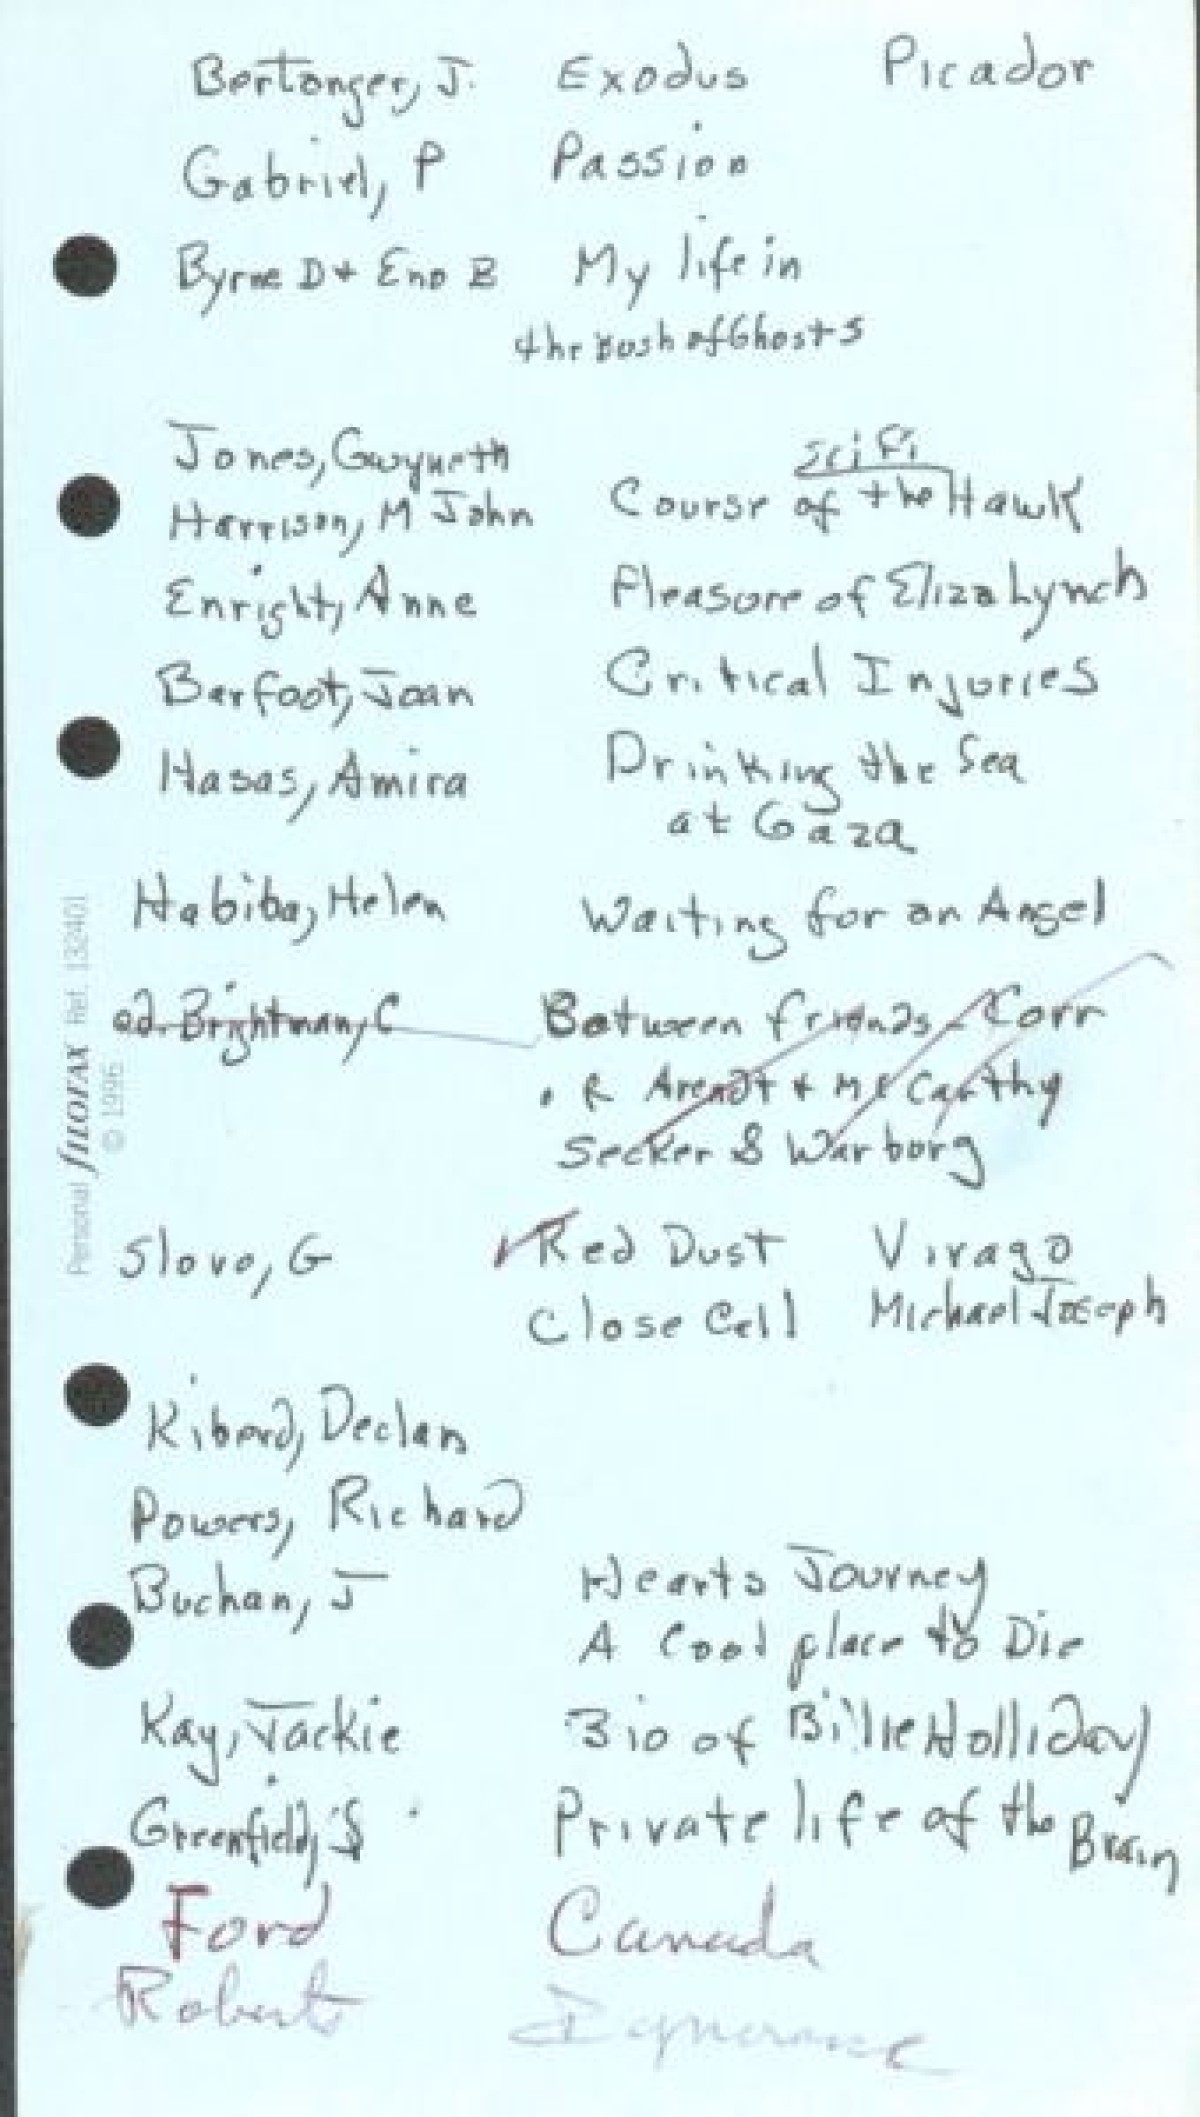 Bertonger, J. Exodus Picador
Gabriel, P Passion
Byrne D + Eno B My life in
the Bush of Ghosts
Jones, Gwyneth sci Fi
Harrison, M John Course of the Hawk
Enright, Anne Pleasure of Eliza Lynch
Barfoot, Joan Critical Injuries
Hasas, Amira Drinking the Sea
at Gaza
Habiba, Helen Waiting for an Angel
ed. Brightman, C Between friends - Corr
Arendt + McCarthy
Secker & Warborg
Slovo, G Red Dust Virago
Close Cell Michael Joseph
Kiberd, Declan
Powers, Richard
Buchan, J Hearts Journey
A Cool place to Die
Kay, Jackie Bio of Billie Holliday
Greenfield, S Private life of the Brain
Ford Canada
Roberts Ignorance
Personal FILOFAX Ref. 132401
© 1996